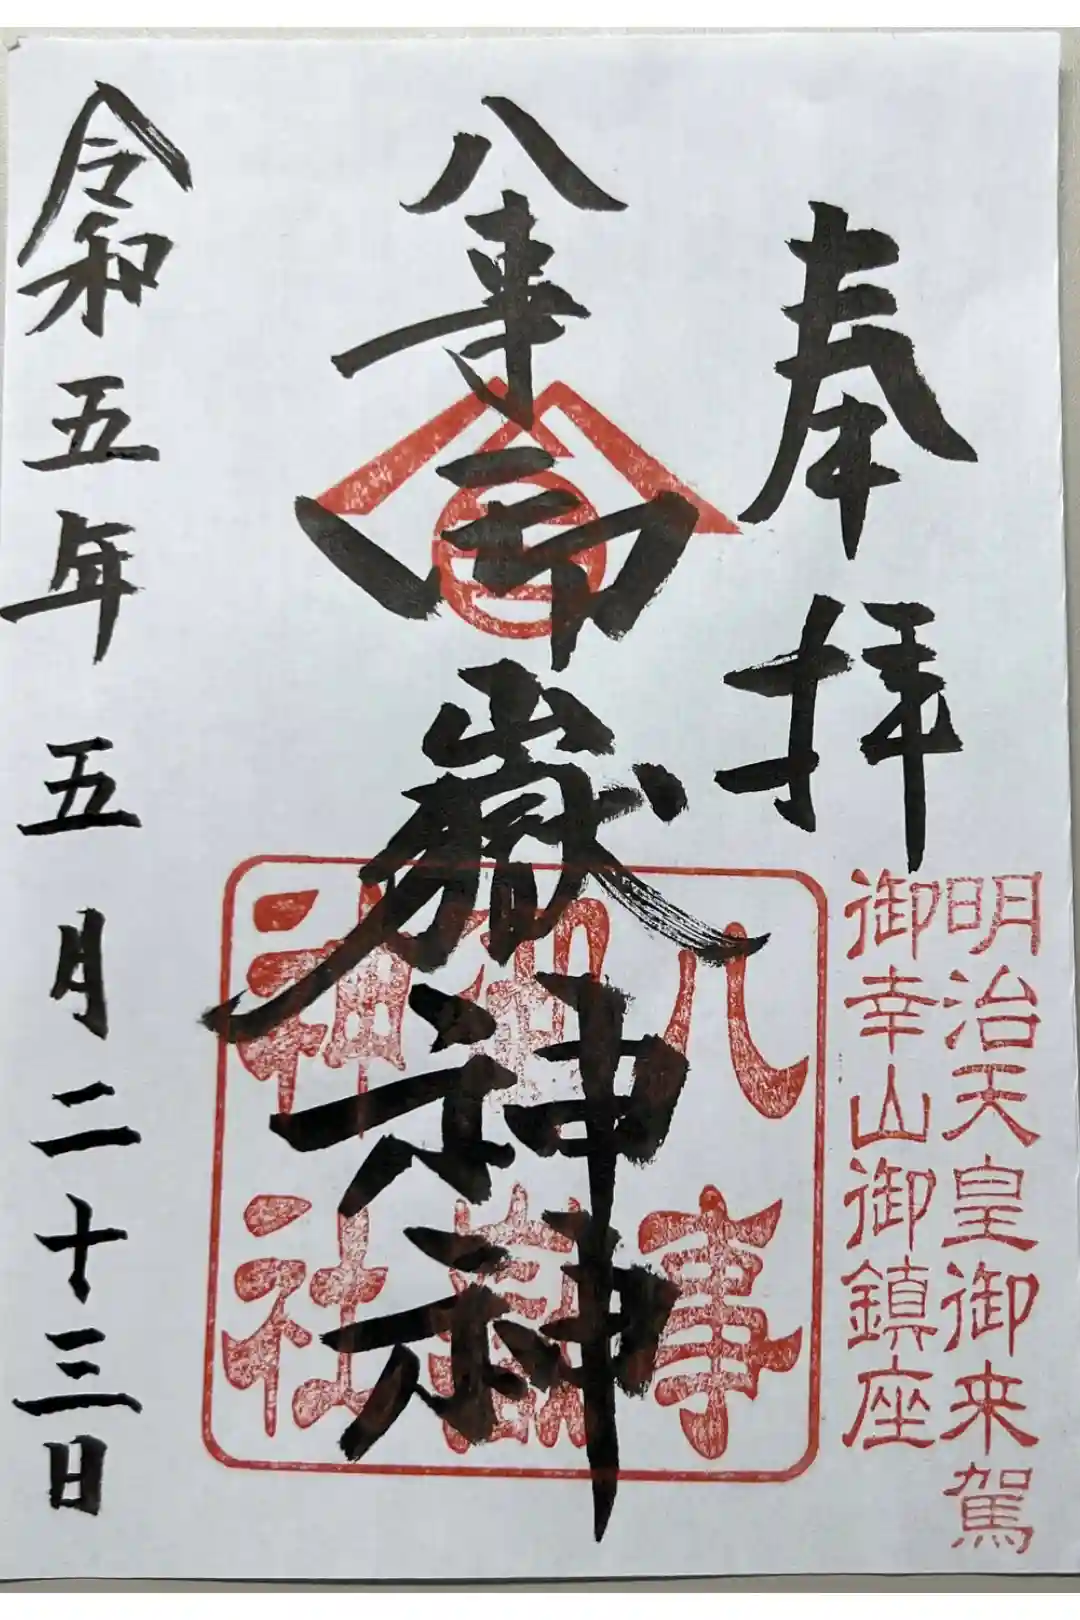 奉拝
明治天皇御来駕
御幸山御鎮座
八事御嶽神社
八事
御嶽
神社
令和五年五月二十三日